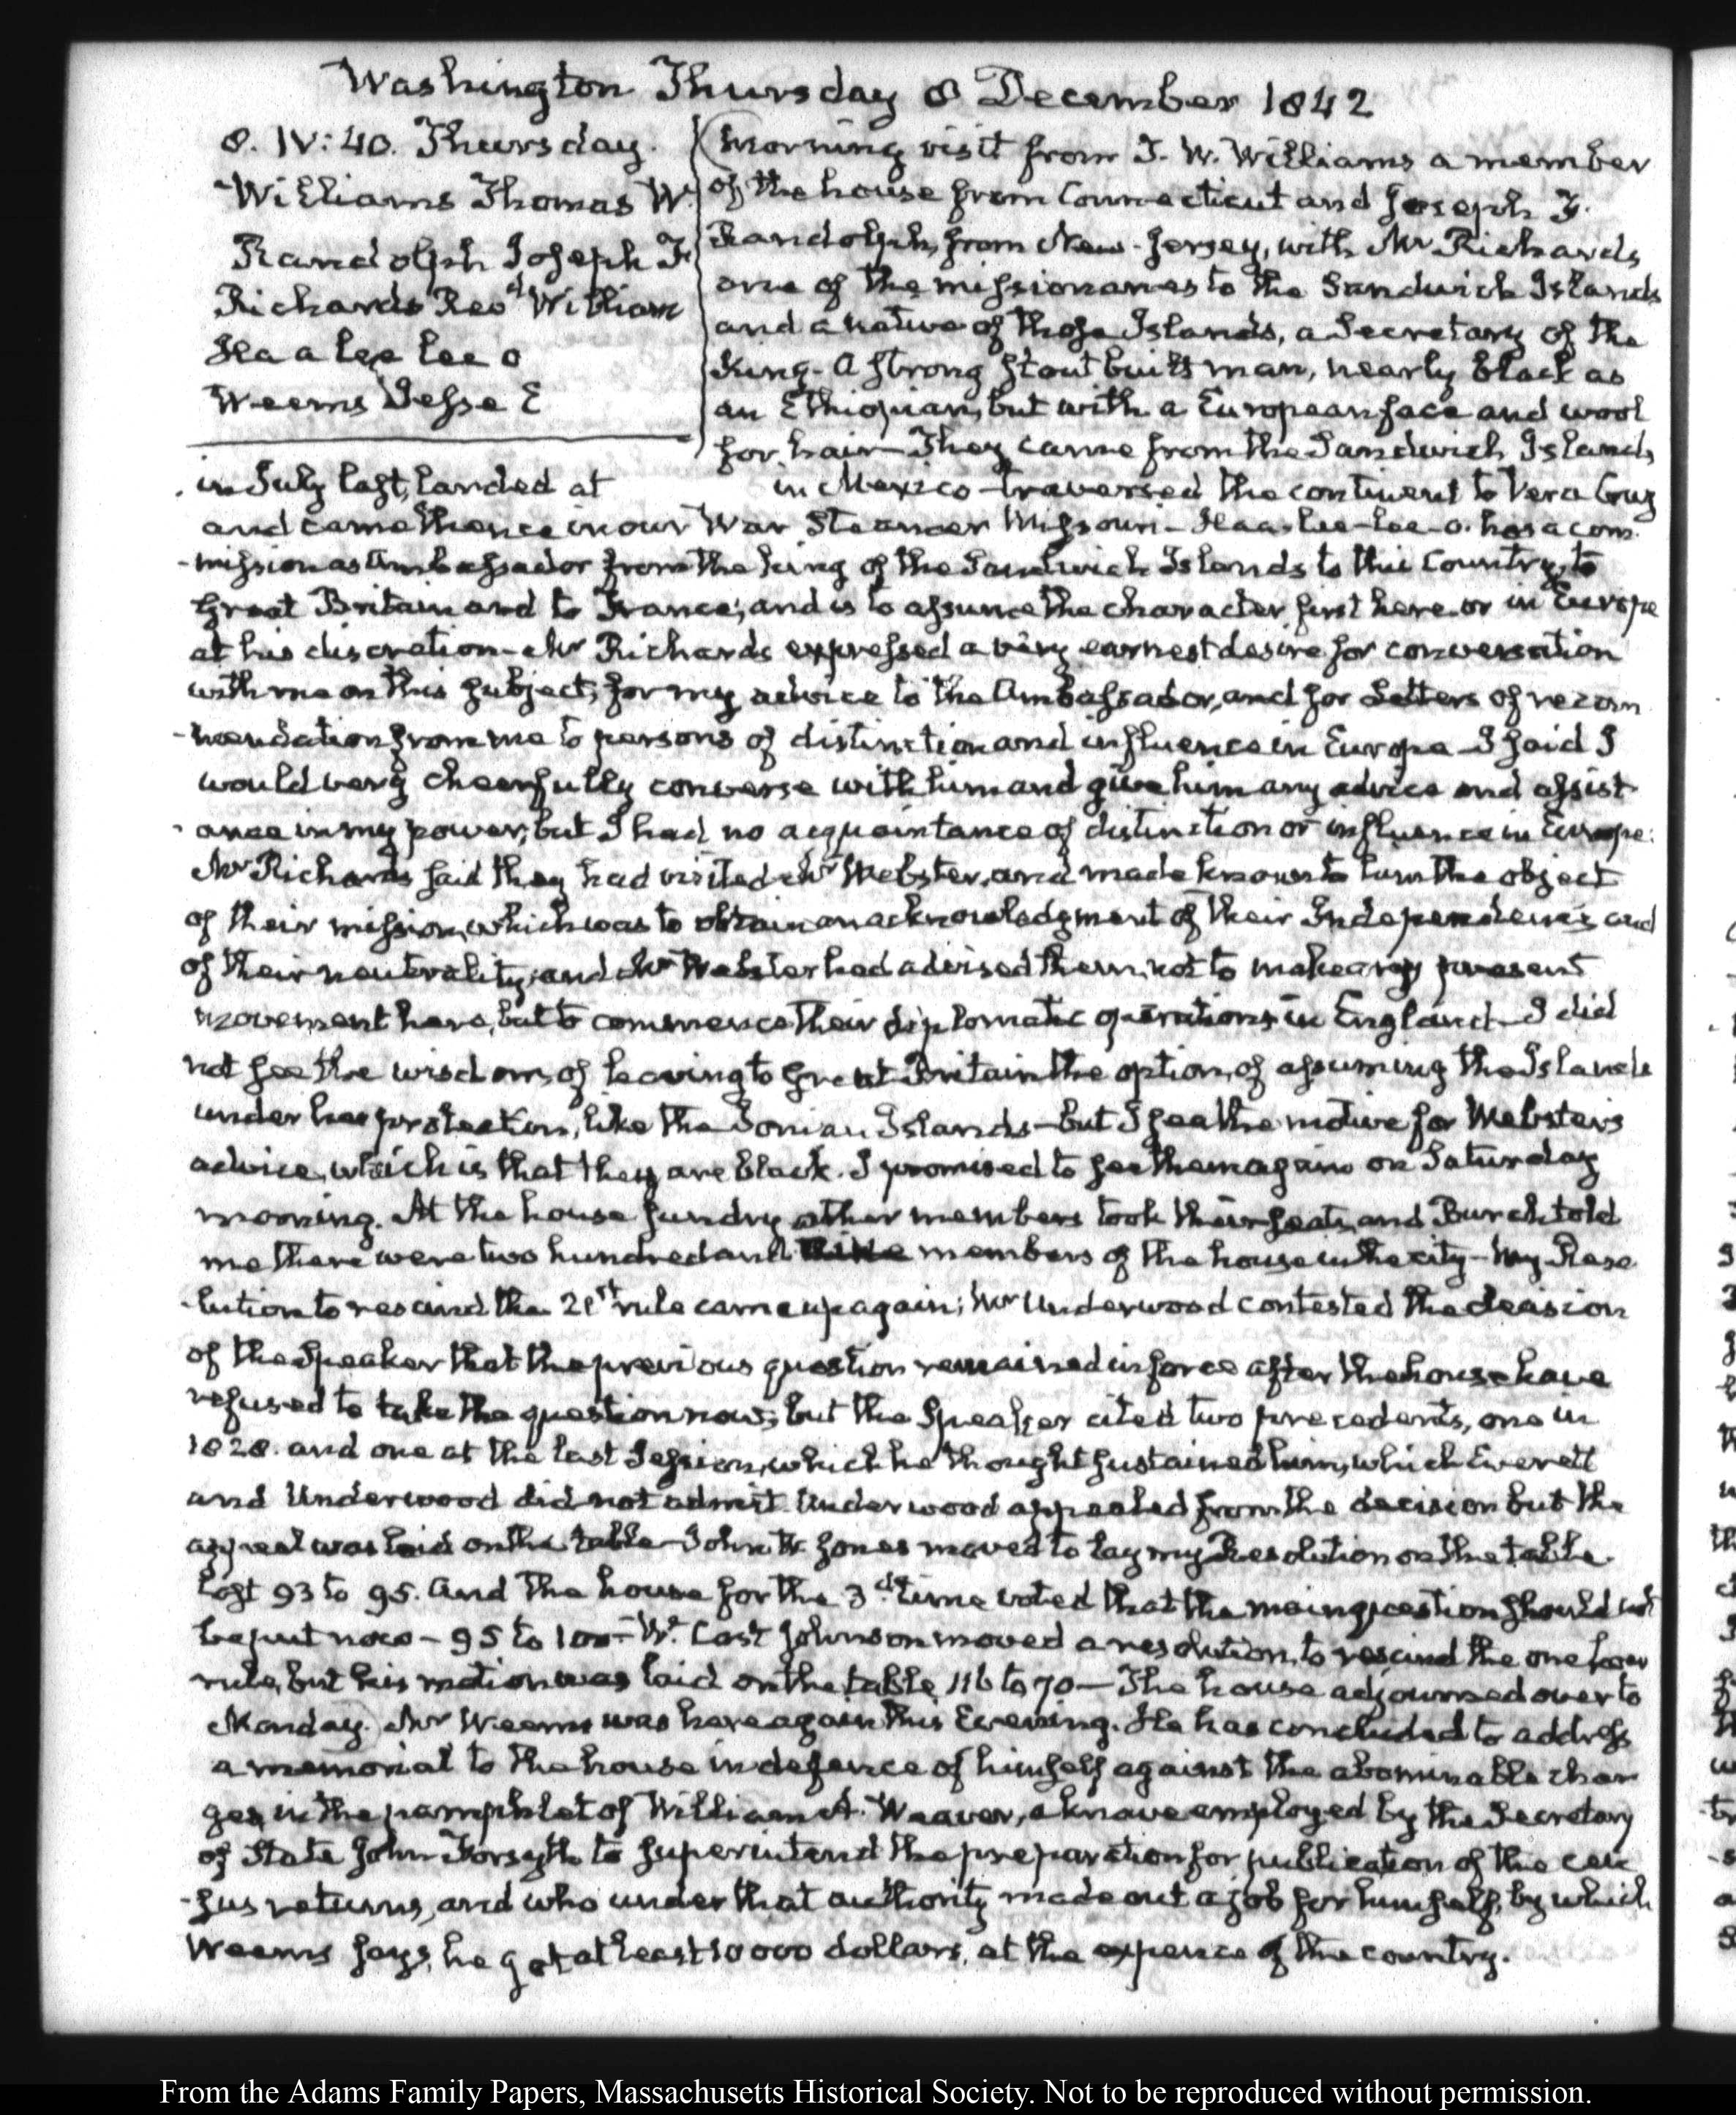 Washington Thursday 8 December 1842
8. IV:40. Thursday.
Williams Thomas W.
Randolph Joseph F
Richards Revd William
Haaleeleeo
Weems Jesse E
Morning visit from T. W. Williams a member
of the house from Connecticut and Joseph F.
Randolph, from New-Jersey, with Mr Richards
one of the missionaries to the Sandwich Islands
and a native of those Islands, a Secretary of the
King- A strong stout built man, nearly black as
an Ethiopian, but with a European face and wool
for hair- They came from the Sandwich Islands
in July last, landed at in Mexico- traversed the continent to Vera Cruz
and came thence in our War Steamer Missouri- Haa-lee-lee-o. has a com-
-mission as Ambassador from the King of the Sandwich Islands to this Country, to
Great Britain and to France; and is to assume the character first here or in Europe
at his discretion- Mr Richards expressed a very earnest desire for conversation
with me on this subject, for my advice to the Ambassador, and for Letters of recom
-mendation from me to persons of distinction and influence in Europe- I said I
would very cheerfully converse with him and give him any advice and assist-
-ance in my power; but I had no acquaintance of distinction or influence in Europe:
Mr Richards said they had visited Mr Webster, and made known to him the object
of their mission, which was to obtain an acknowledgment of their Independence and
of their neutrality; and Mr Webster had advised them, not to make any present
movement here, but to commence their diplomatic operations in England- I did
not see the wisdom, of leaving to Great Britain the option, of assuming the Islands
under her protection, like the Ionian Islands- but I see the motive for Webster's
advice, which is that they are black. I promised to see them again on Saturday
morning. At the house sundry other members took their seats, and Burch told
me there were two hundred and members of the house in the city- My Reso
-lution to rescind the 21st rule came up again; Mr Underwood contested the decision
of the Speaker that the previous question remained in force after the house have
refused to take the question now; but the Speaker cited two precedents, one in
1828. and one at the last Session, which he thought sustained him, which Everett
and Underwood did not admit. Underwood appealed from the decision but the
appeal was laid on the table- John W. Jones moved to lay my Resolution on the table
lost 93 to 95. And the house for the 3d. time voted that the main question should not
be put now- 95 to 100- Wm. Cost Johnson moved a resolution, to rescind the one hour
rule, but his motion was laid on the table 116 to 70- The house adjourned over to
Monday. Mr Weems was here again this Evening. He has concluded to address
a memorial to the house in defence of himself against the abominable char
ges, in the pamphlet of William A. Weaver, a knave employed by the Secretary
of State John Forsyth to superintend the preparation for publication of the cen
-sus returns, and who under that authority made out a job for himself, by which
Weems says, he got at least 10000 dollars, at the expence of the country.
From the Adams Family Papers, Massachusetts Historical Society. Not to be reproduced without permission.